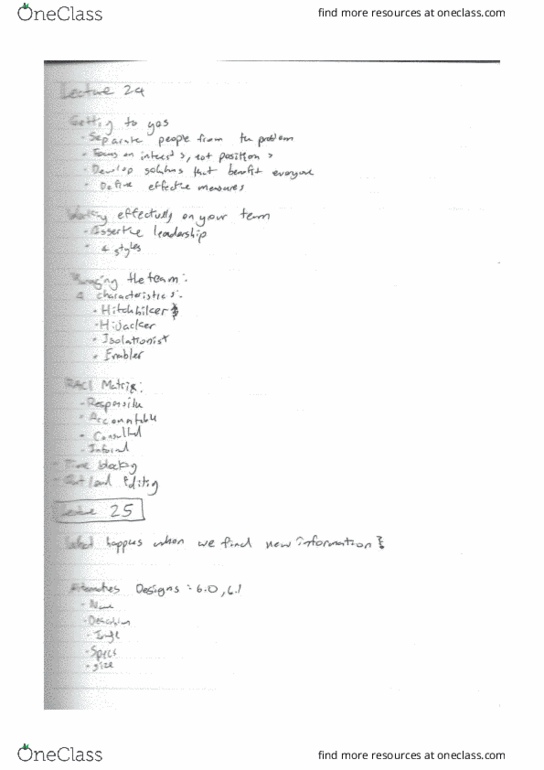 OneClass
find more resources at oneclass.com
Lecture 24
Getting to yes
- Separate people from the problem
- Focus on interests, not positions
- Develop solutions that benefit everyone
- Define effective measures
Working effectively on your team
- Assertive leadership
- 4 styles
Managing the team:
4 characteristics:
- Hitchhiker
- Hijacker
- Isolationist
- Enabler
RACI Matrix:
- Responsible
- Accountable
- Consulted
- Informed
- Time blocking
- 
Lecture 25
What happens when we find new information
Alternatives Designs: 6.0, 6.1
- Name
- Description
- Image
- Specs
- size
OneClass
find more resources at oneclass.com